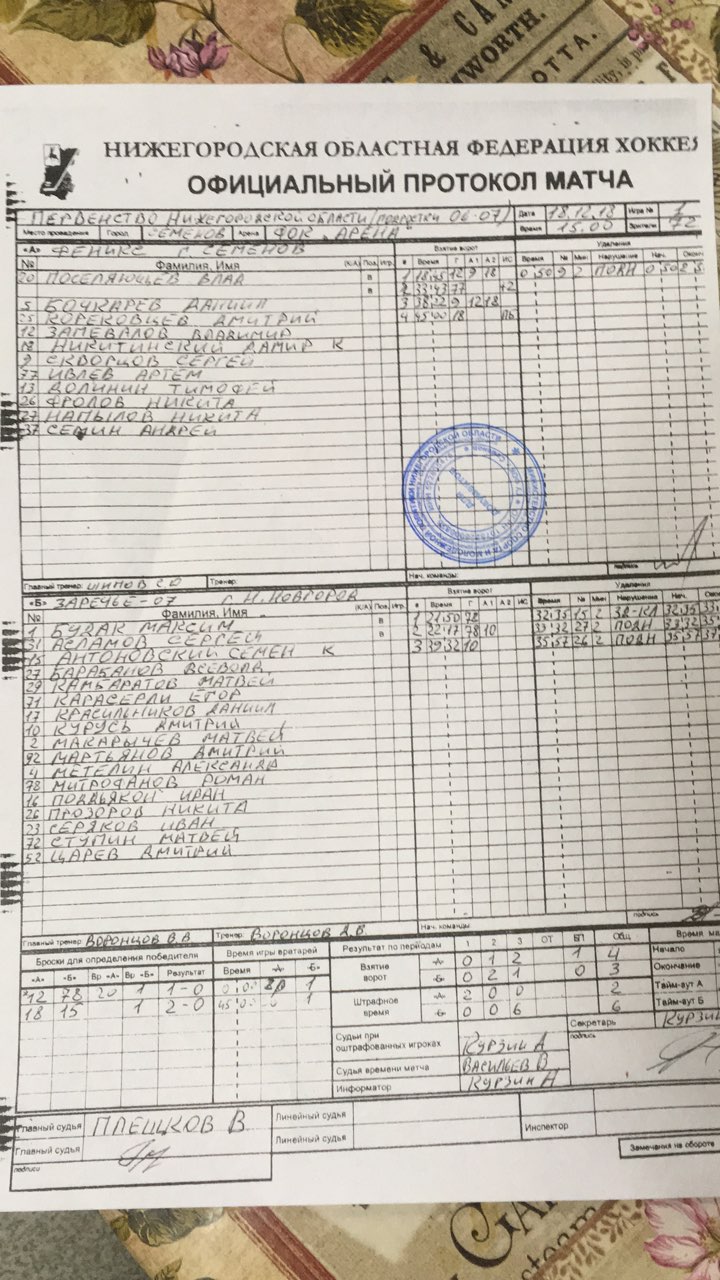 & CA
WORTH.
OTTA.
НИЖЕГОРОДСКАЯ ОБЛАСТНАЯ ФЕДЕРАЦИЯ ХОККЕЯ
ОФИЦИАЛЬНЫЙ ПРОТОКОЛ МАТЧА
ПЕРВЕНСТВО НИЖЕГОРОДСКОЙ ОБЛАСТИ (ПОДРОСТКИ 06-07) Дата 18.12.18 Игра № 1
Место проведения Город СЕМЕНОВ Арена ФОК "АРЕНА" Время 15.00 Зрители 72
«А» ФЕНИКС г. СЕМЕНОВ Взятие ворот Удаления
№ Фамилия, Имя (К/А) Поз. Игр. # Время Г А1 А2 ИС Время № Мин Нарушение Нач. Оконч
20 ПОСЕЛЯЮЩЕВ ВЛАД в 1 18 45 12 9 18 0 50 9 2 ПОДН 0 50
в 2 33 43 77 +2
5 БОЧКАРЕВ ДАНИИЛ 3 38 22 9 12 18
КОРЕКОВЦЕВ ДМИТРИЙ 4 45 00 18 ПБ
12 ЗАМЕВАЛОВ ВЛАДИМИР
18 НИКИТИНСКИЙ ДАМИР К
9 СКВОРЦОВ СЕРГЕЙ
77 ИВЛЕВ АРТЕМ
13 ДОЛИНИН ТИМОФЕЙ
26 ФРОЛОВ НИКИТА
27 НАПЫЛОВ НИКИТА
37 СЕМИН АНДРЕЙ
Главный тренер: ШИПОВ С.О Тренер: Нач. команды: подпись
«Б» ЗАРЕЧЬЕ-07 г. Н.НОВГОРОД Взятие ворот Удаления
№ Фамилия, Имя (К/А) Поз. Игр. # Время Г А1 А2 ИС Время № Мин Нарушения Нач. Оконч
1 БУДАК МАКСИМ в 1 21 50 78 32 35 15 2 ЗД-КЛ 32 35
31 АСЛАМОВ СЕРГЕЙ в 2 22 17 78 10 33 32 27 2 ПОДН 33 32
15 АНТОНОВСКИЙ СЕМЕН К 3 39 32 10 35 57 26 2 ПОДН 35 57
27 БАРАБАНОВ ВСЕВОЛД
29 КАМБАРАТОВ МАТВЕЙ
71 КАРАСЕРЛИ ЕГОР
17 КРАСИЛЬНИКОВ ДАНИИЛ
10 КУРУСЬ ДМИТРИЙ
2 МАКАРЫЧЕВ МАТВЕЙ
92 МАРТЬЯНОВ ДМИТРИЙ
4 МЕТЕЛИН АЛЕКСАНДР
78 МИТРОФАНОВ РОМАН
16 ПОДДЬЯКОН ИВАН
26 ПРОЗОРОВ НИКИТА
23 СЕРЯКОВ ИВАН
72 СТУПИН МАТВЕЙ
52 ЦАРЕВ ДМИТРИЙ
Главный тренер ВОРОНЦОВ В.А Тренер: ВОРОНЦОВ Д.В. Нач. команды: подпись
Броски для определения победителя Время игры вратарей Результат по периодам 1 2 3 ОТ БП Общ Время ма
«А» «Б» Вр «А» Вр «Б» Результат Время «А» «Б» Взятие ворот «А» 0 1 2 1 4 Начало
12 78 20 1 1-0 0 00 20 1 «Б» 0 2 1 0 3 Окончание
18 15 1 2-0 45 00 1 Штрафное время «А» 2 0 0 2 Тайм-аут А
«Б» 0 0 6 6 Тайм-аут Б
Судьи при оштрафованных игроках КУРЗИН А Секретарь КУРЗИН
подпись
Судья времени матча ВАСИЛЬЕВ В
Информатор КУРЗИН А
Главный судья ПЛЕШКОВ В. Линейный судья
Главный судья Линейный судья Инспектор
подписи Замечания на обороте